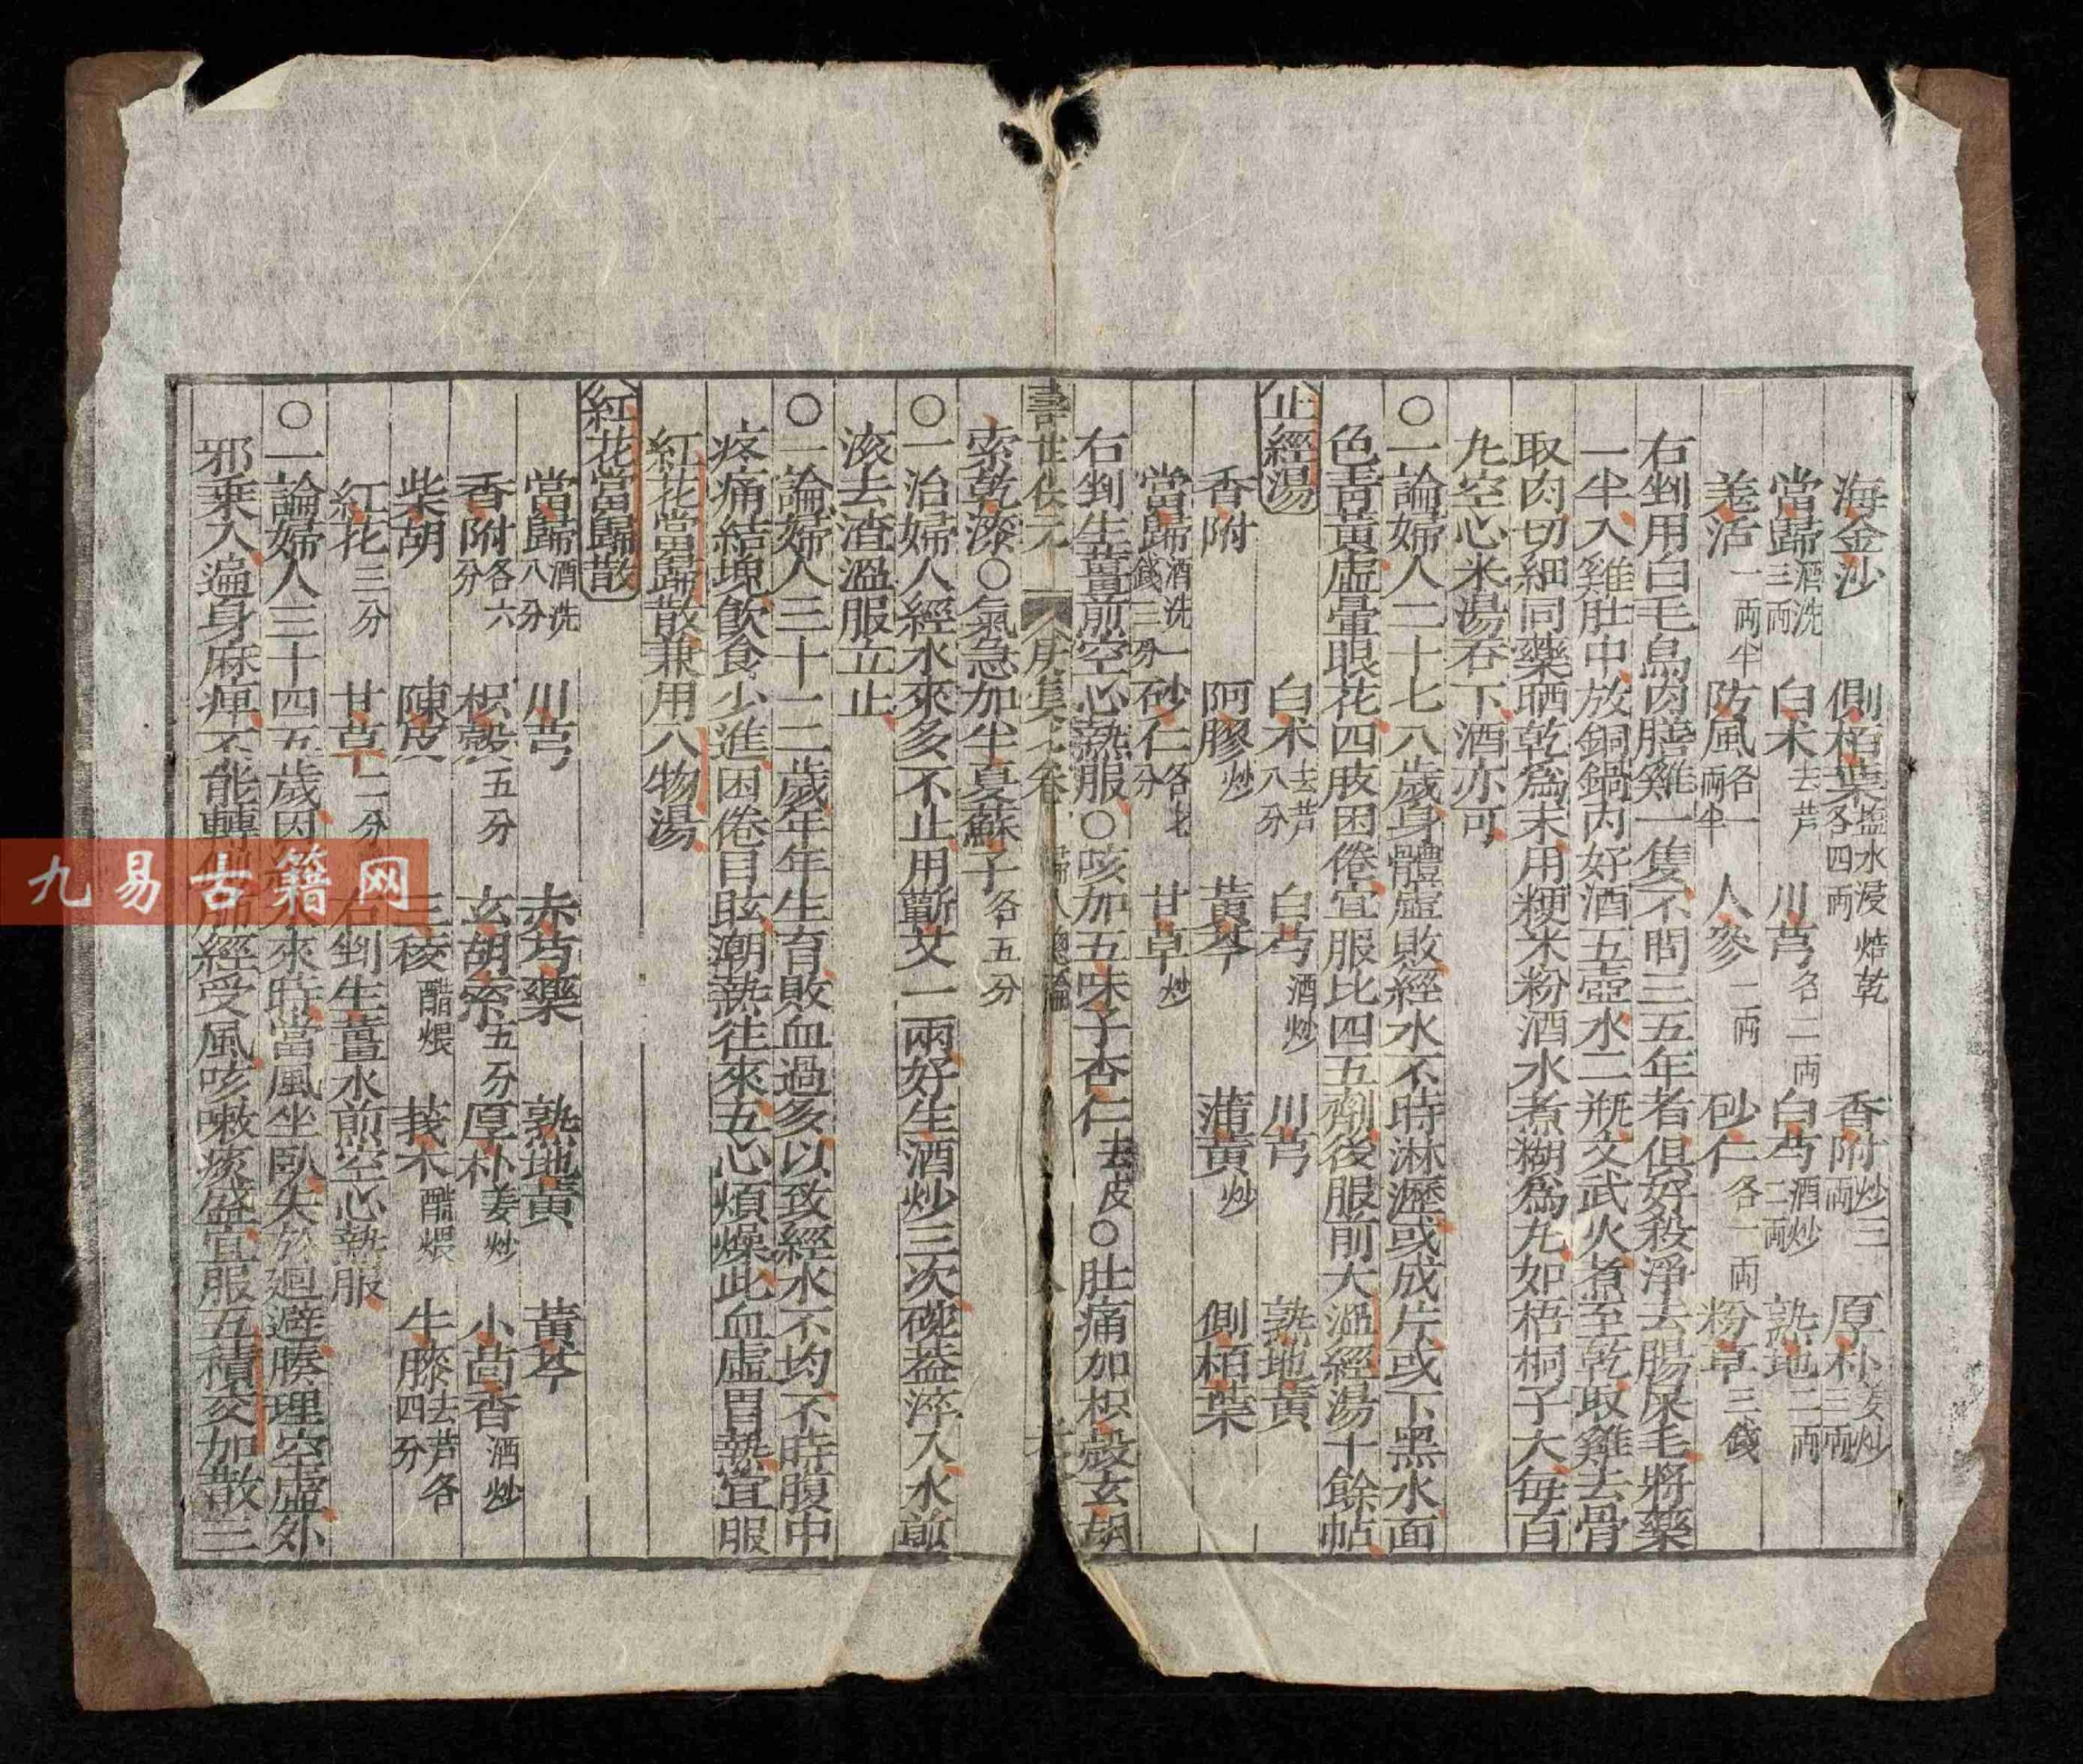 海金沙　側栢葉塩水浸焙乾各四両　香附炒三両　厚朴姜炒三両
當歸酒洗三両　白术去芦　川芎各二両　白芍酒炒二両　熟地二両
羌活一両半　防風各一両半　人參二両　砂仁各一両　粉草三錢
右剉用白毛烏肉騸雞一隻不問三五年者但好殺淨去腸屎毛將藥
一半入雞肚中放銅鍋内好酒五壺水二瓶文武火煮至乾取雞去骨
取肉切細同藥晒乾為末用粳米粉酒水煮糊為丸如梧桐子大每百
丸空心米湯吞下酒亦可
○一論婦人二十七八歲身體虛敗經水不時淋瀝或成片或下黑水面
色青黃虛暈眼花四肢困倦宜服比四五劑後服前大溫經湯十餘帖
止經湯　白术去芦八分　白芍酒炒　川芎　熟地黃
香附　阿膠炒　黃芩　蒲黃炒　側栢葉
當歸酒洗一錢三分　砂仁各七分　甘草炒
右剉生薑煎空心熱服○咳加五味子杏仁去皮○肚痛加枳殼玄胡
壽世保元　卷　婦人總論
索乾漆○氣急加半夏蘇子各五分
○一治婦人經水來多不止用蘄艾一兩好生酒炒三次碗蓋淬入水煎
滚去渣溫服立止
○一論婦人三十一二歲年年生育敗血過多以致經水不均不時腹中
疼痛結塊飲食少進困倦目眩潮熱往來五心煩燥此血虛胃熱宜服
紅花當歸散兼用八物湯
紅花當歸散
當歸酒洗八分　川芎　赤芍藥　熟地黃　黃芩
香附各六分　枳殼五分　玄胡索五分　厚朴姜炒　小茴香酒炒
柴胡　陳皮　三稜醋煨　莪术醋煨　牛膝去芦各四分
紅花三分　甘草二分　右剉生薑水煎空心熱服
○一論婦人三十四五歲因來時當風坐臥失於廻避腠理空虛外
邪乗入遍身麻痺不能轉肺經受風咳嗽痰盛宜服五積交加散三
九易古籍网